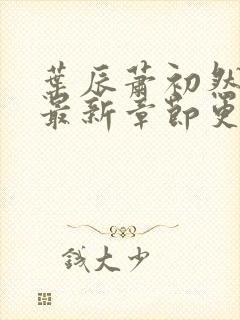 葉辰蕭初然
最新章節更
錢大少